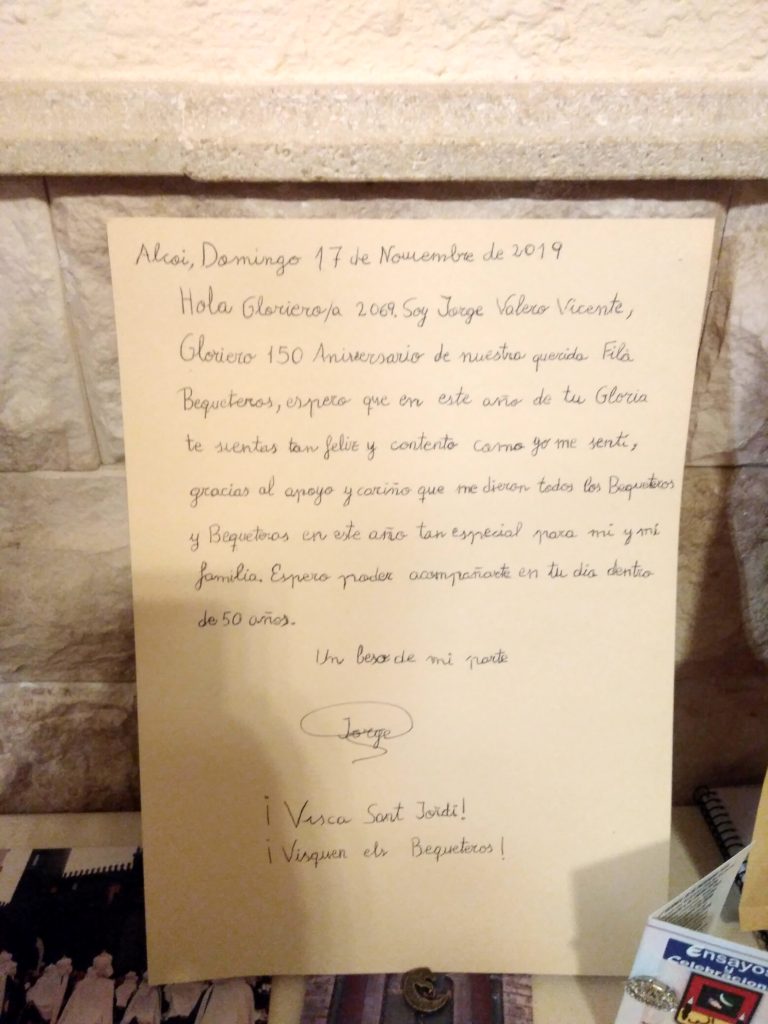 Alcoi, Domingo 17 de Noviembre de 2019
Hola Gloriero/a 2069. Soy Jorge Valero Vicente,
Gloriero 150 Aniversario de nuestra querida Filà
Bequeteros, espero que en este año de tu Gloria
te sientas tan feliz y contento como yo me sentí,
gracias al apoyo y cariño que me dieron todos los Bequeteros
y Bequeteras en este año tan especial para mi y mi
familia. Espero poder acompañarte en tu día dentro
de 50 años.
Un beso de mi parte
Jorge
¡Visca Sant Jordi!
¡Visquen els Bequeteros!
Ensayos
y
Celebracion